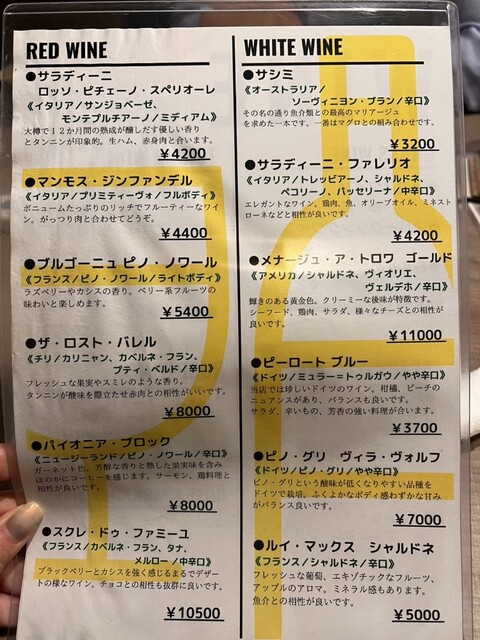 RED WINE
●サラディーニ
ロッソ・ピチェーノ・スペリオーレ
《イタリア/サンジョベーゼ、
モンテプルチアーノ/ミディアム》
大樽で12か月間の熟成が醸しだす優しい香り
とタンニンが印象的。生ハム、赤身肉と合います。
¥4200
●マンモス・ジンファンデル
《イタリア/プリミティーヴォ/フルボディ》
ボニュームたっぷりのリッチでフルーティーなワイ
ン。がっつり肉と合わせてどうぞ。
¥4400
●ブルゴーニュ ピノ・ノワール
《フランス/ピノ・ノワール/ライトボディ》
ラズベリーやカシスの香り。ベリー系フルーツの
味わいと楽しめます。
¥5400
●ザ・ロスト・バレル
《チリ/カリニャン、カベルネ・フラン、
プティ・ベルド/辛口》
フレッシュな果実やスミレのような香り。
タンニンが酸味を際立たせ赤肉との相性がいいです。
¥8000
●パイオニア・ブロック
《ニュージーランド/ピノ・ノワール/辛口》
ガーネット色。芳醇な香りと熟した果実味を含み
ほのかにコーヒーを感じます。サーモン、鶏料理と
相性が良いです。
¥8000
●スクレ・ドゥ・ファミーユ
《フランス/カベルネ・フラン、タナ、
メルロー/中辛口》
ブラックベリーとカシスを強く感じるまるでデザー
トの様なワイン。チョコとの相性も抜群に良いです。
¥10500
WHITE WINE
●サシミ
《オーストラリア/
ソーヴィニヨン・ブラン/辛口》
その名の通り魚介類との最高のマリアージュ
を求めた一本です。一番はマグロとの組み合わせです。
¥3200
●サラディーニ・ファレリオ
《イタリア/トレッビアーノ、シャルドネ、
ペコリーノ、パッセリーナ/中辛口》
エレガントなワイン。鶏肉、魚、オリーブオイル、ミネスト
ローネなどと相性が良いです。
¥4200
●メナージュ・ア・トロワ ゴールド
《アメリカ/シャルドネ、ヴィオリエ、
ヴェルデホ/辛口》
輝きのある黄金色。クリーミーな後味が特徴です。
シーフード、鶏肉、サラダ、様々なチーズとの相性が
良いです。
¥11000
●ピーロート ブルー
《ドイツ/ミュラー=トゥルガウ/やや辛口》
当店では珍しいドイツのワイン。柑橘、ピーチの
ニュアンスがあり、バランスも良いです。
サラダ、辛いもの、芳香の強い料理が合います。
¥3700
●ピノ・グリ ヴィラ・ヴォルフ
《ドイツ/ピノ・グリ/やや辛口》
ピノ・グリという酸味が低くなりやすい品種を
ドイツで栽培。ふくよかなボディ感わずかな甘み
がバランス良いです。
¥7000
●ルイ・マックス シャルドネ
《フランス/シャルドネ/辛口》
フレッシュな葡萄、エキゾチックなフルーツ、
アップルのアロマ。ミネラル感もあります。
魚介との相性が良いです。
¥5000